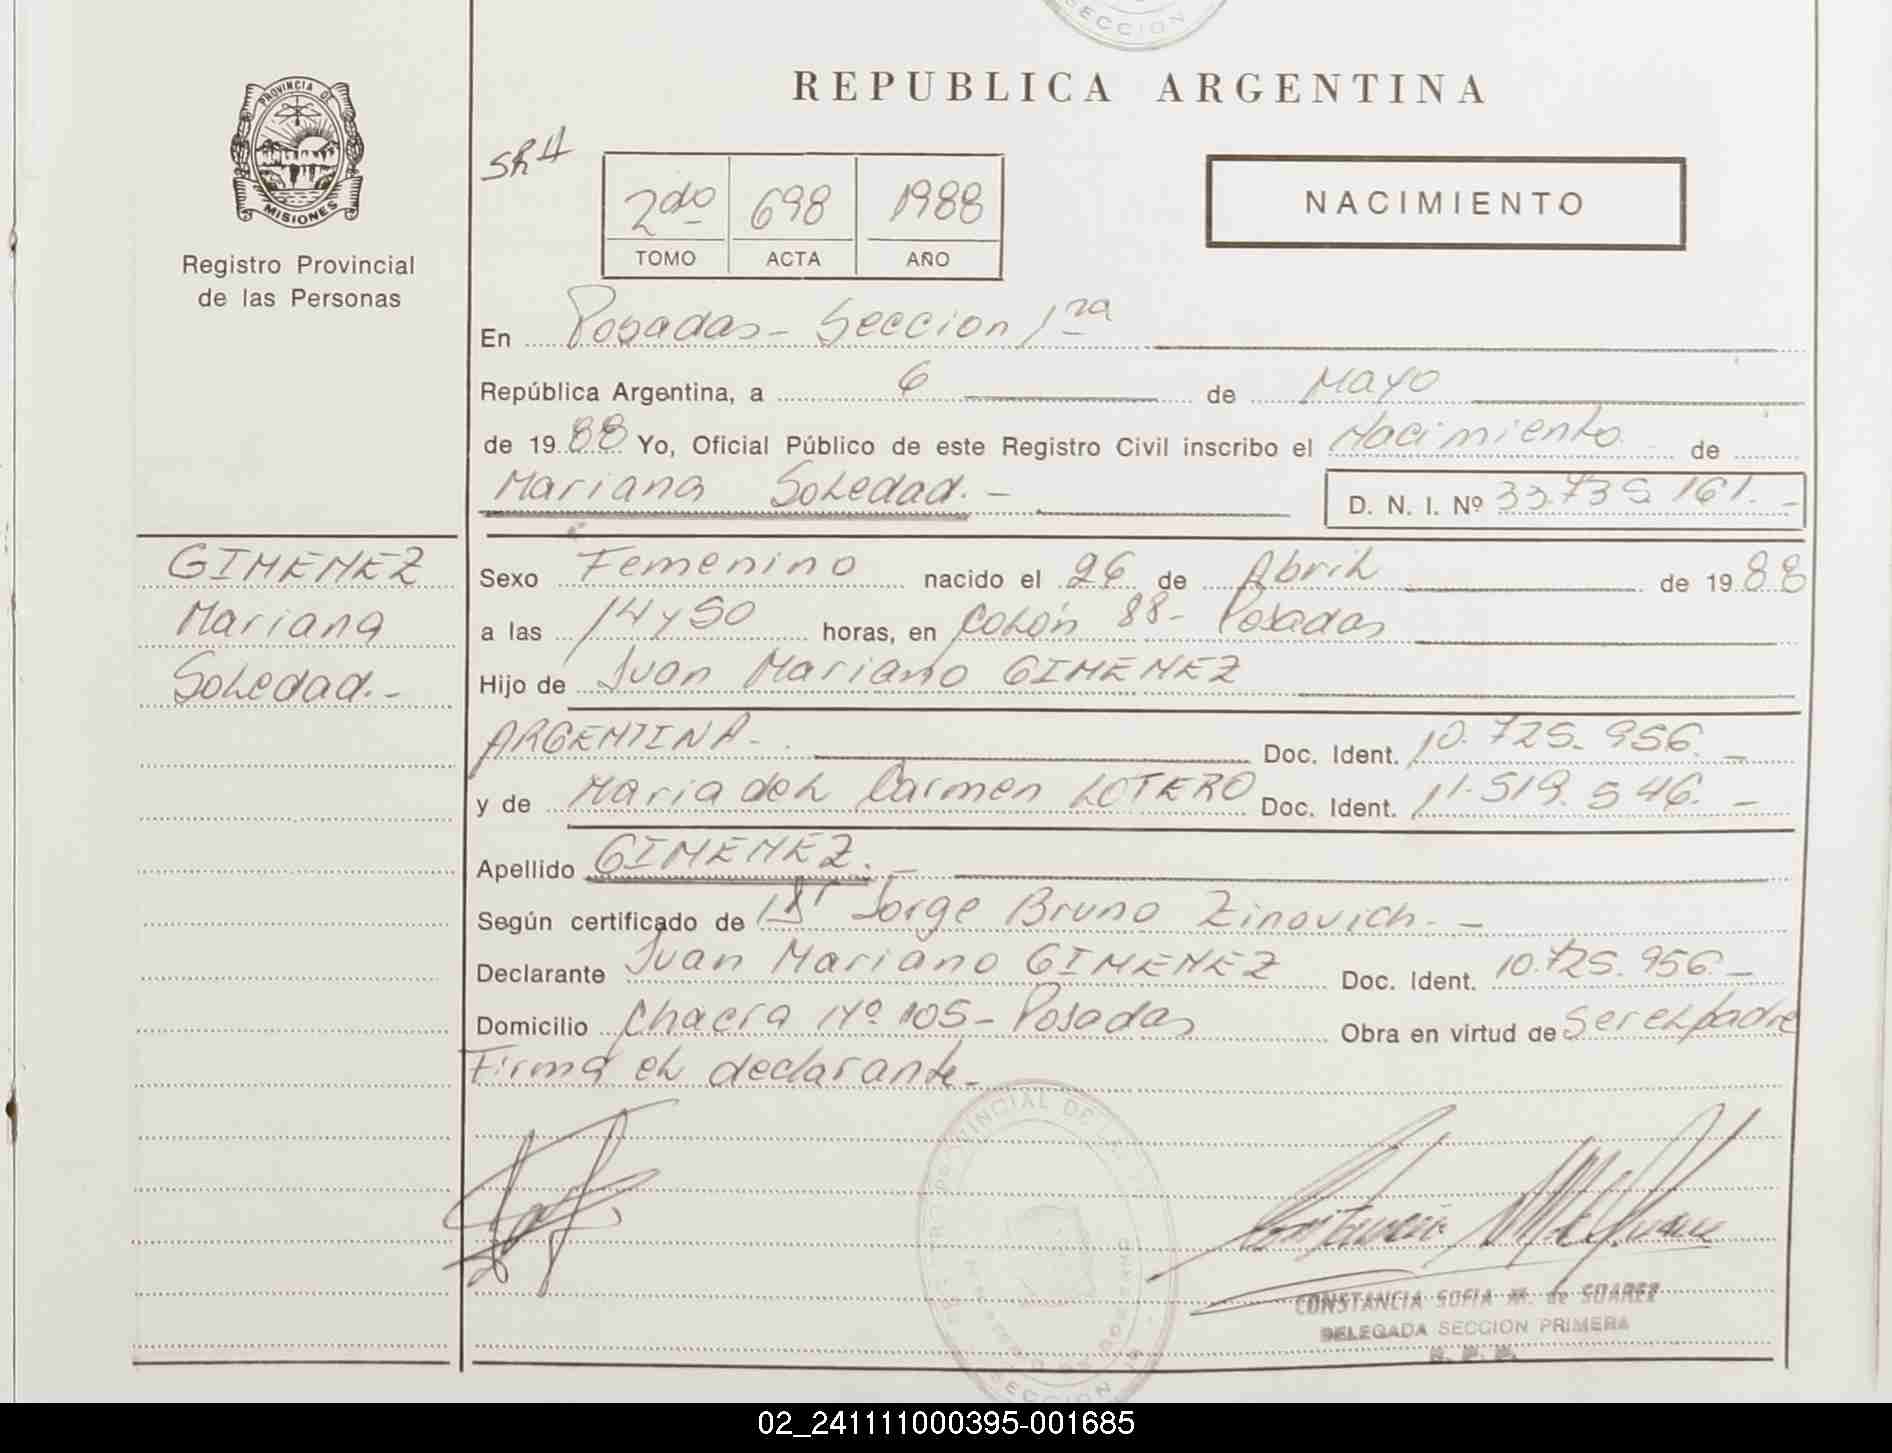 SECCION
PROVINCIA DE
MISIONES
Registro Provincial
de las Personas
REPUBLICA ARGENTINA
2do 698 1988
TOMO ACTA AÑO
NACIMIENTO
En Posadas - Seccion 1ra
República Argentina, a 6 de Mayo
de 1988 Yo, Oficial Público de este Registro Civil inscribo el Nacimiento de
Mariana Soledad. - D. N. I. Nº 33.735.161. -
GIMENEZ
Mariana
Soledad. -
Sexo Femenino nacido el 26 de Abril de 1988
a las 14 y 50 horas, en Colón 88 - Posadas
Hijo de Juan Mariano GIMENEZ
ARGENTINA - Doc. Ident. 10.725.956. -
y de Maria del Carmen LOTERO Doc. Ident. 11.519.546. -
Apellido GIMENEZ. -
Según certificado de Jorge Bruno Zinovich. -
Declarante Juan Mariano GIMENEZ Doc. Ident. 10.725.956 -
Domicilio Chacra Nº 105 - Posadas Obra en virtud de Ser el padre
Firma el declarante. -
CONSTANCIA SOFIA M. de SUAREZ
DELEGADA SECCION PRIMERA
SECCION
02_241111000395-001685